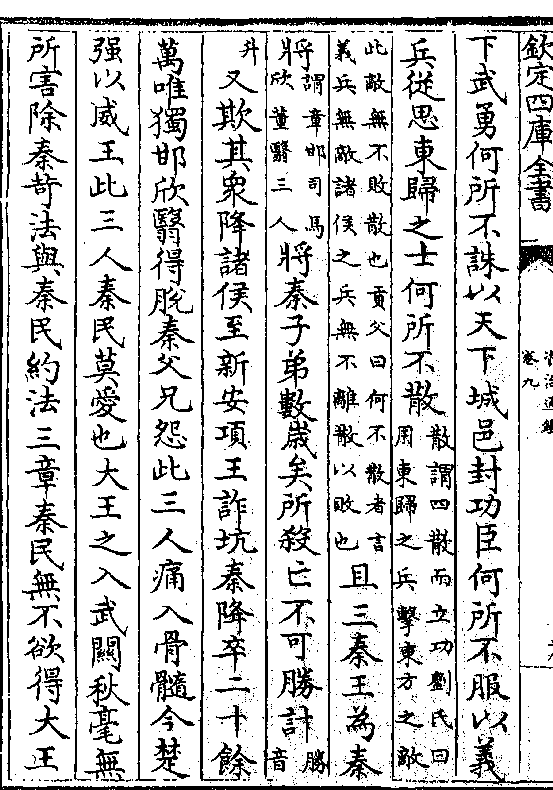 欽定四庫全書
卷九
下武勇何所不誅以天下城邑封功臣何所不服以義
兵從思東歸之士何所不散散謂四散而立功劉氏曰用東歸之兵擊東方之敵
此敵無不敗散也貢父曰何不散者言義兵無敵諸侯之兵無不離散以敗也且三秦王為秦
將謂章邯司馬欣董翳三人將秦子弟數歲矣所殺亡不可勝計勝音
升又欺其衆降諸侯至新安項王詐坑秦降卒二十餘
萬唯獨邯欣翳得脫秦父兄怨此三人痛入骨髓今楚
强以威王此三人秦民莫愛也大王之入武關秋毫無
所害除秦苛法與秦民約法三章秦民無不欲得大王